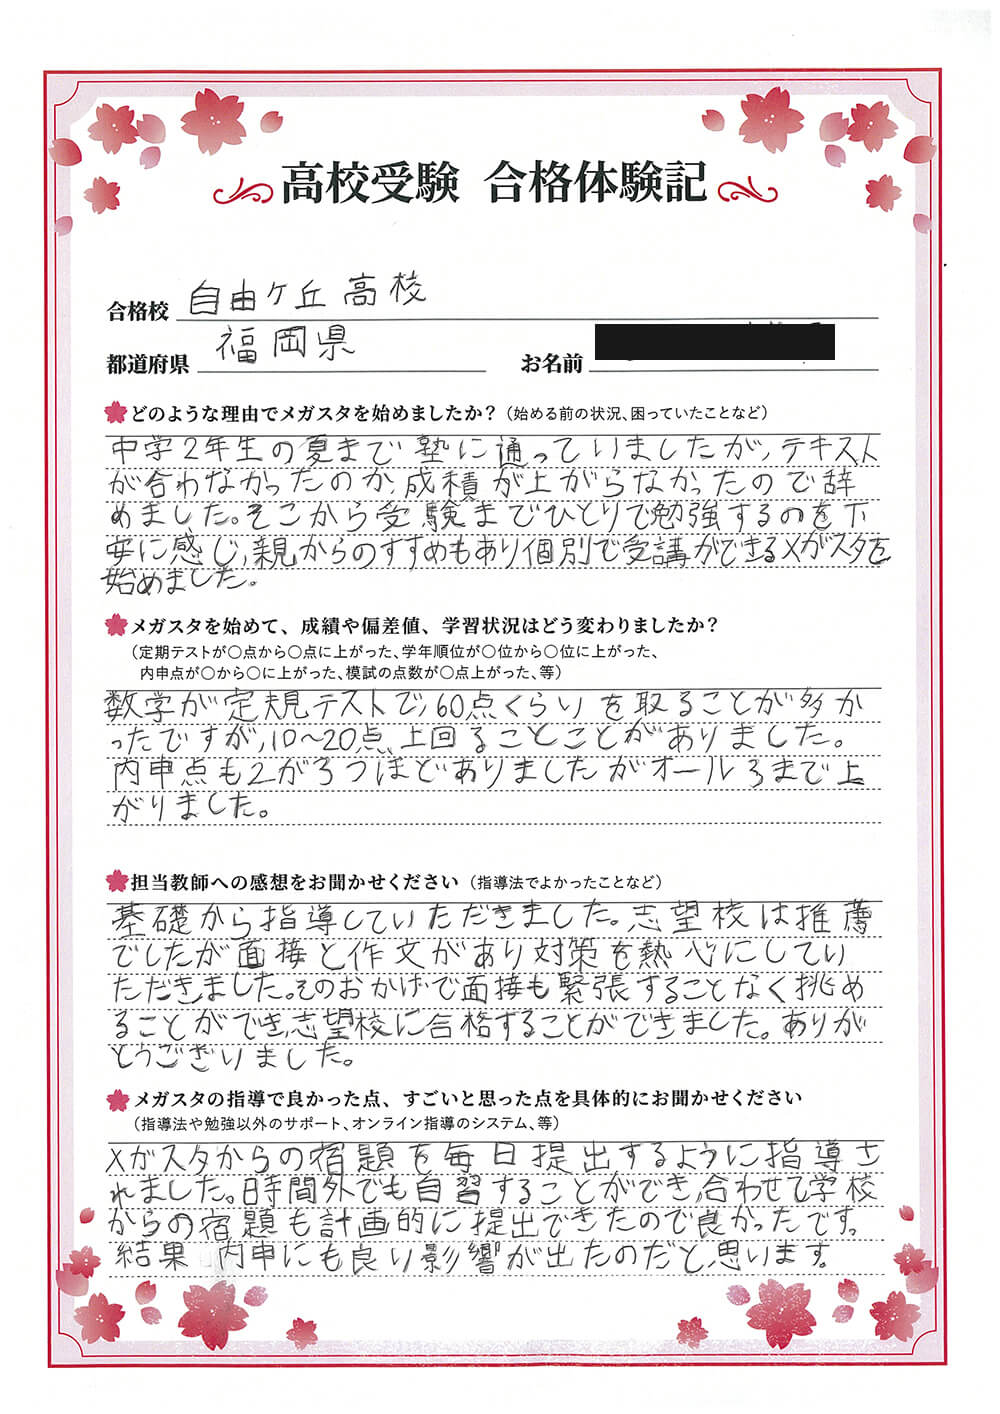 高校受験 合格体験記
合格校 自由ケ丘高校
都道府県 福岡県 お名前
どのような理由でメガスタを始めましたか？（始める前の状況、困っていたことなど）
中学2年生の夏まで塾に通っていましたが、テキスト
が合わなかったのか成積が上がらなかったので辞
めました。そこから受験までひとりで勉強するのを不
安に感じ、親からのすすめもあり個別で受講ができるメガスタを
始めました。
メガスタを始めて、成績や偏差値、学習状況はどう変わりましたか？
（定期テストが〇点から〇点に上がった、学年順位が〇位から〇位に上がった、
内申点が〇から〇に上がった、模試の点数が〇点上がった、等）
数学が定規テストで、60点くらいを取ることが多か
ったですが、10～20点上回ることことがありました。
内申点も2が3つほどありましたがオール3まで上
がりました。
担当教師への感想をお聞かせください（指導法でよかったことなど）
基礎から指導していただきました。志望校は推薦
でしたが面接と作文があり対策を熱心にしてい
ただきました。そのおかげで面接も緊張することなく挑め
ることができ、志望校に合格することができました。ありが
とうございました。
メガスタの指導で良かった点、すごいと思った点を具体的にお聞かせください
（指導法や勉強以外のサポート、オンライン指導のシステム、等）
メガスタからの宿題を毎日提出するように指導さ
れました。時間外でも自習することができ、合わせて学校
からの宿題も計画的に提出できたので良かったです。
結果 内申にも良い影響が出たのだと思います。